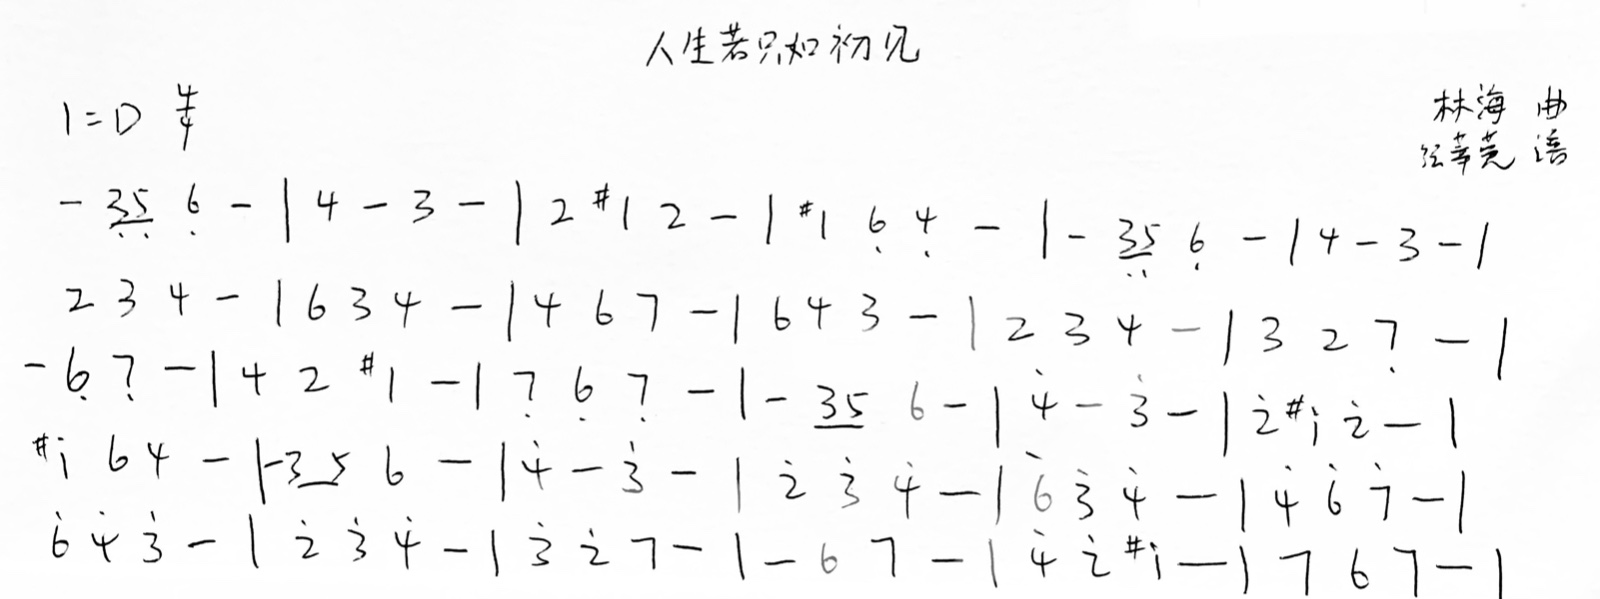 人生若只如初见
1=D 4/4
林海 曲
谱
- 35 6 - | 4 - 3 - | 2 #1 2 - | #1 6 4 - | - 35 6 - | 4 - 3 - |
2 3 4 - | 6 3 4 - | 4 6 7 - | 6 4 3 - | 2 3 4 - | 3 2 7 - |
- 6 7 - | 4 2 #1 - | 7 6 7 - | - 35 6 - | 4 - 3 - | 2 #1 2 - |
#1 6 4 - | - 35 6 - | 4 - 3 - | 2 3 4 - | 6 3 4 - | 4 6 7 - |
6 4 3 - | 2 3 4 - | 3 2 7 - | - 6 7 - | 4 2 #1 - | 7 6 7 - |